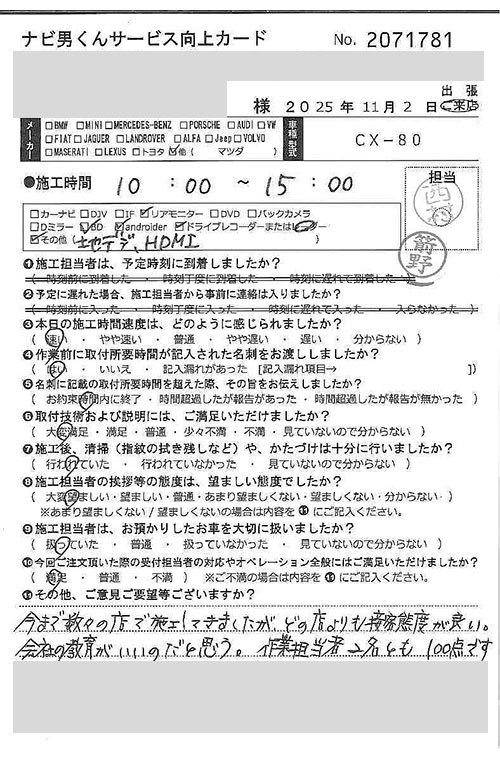 ナビ男くんサービス向上カード No. 2071781
様 2025年11月2日 出張 ご来店
メーカー □BMW □MINI □MERCEDES-BENZ □PORSCHE □AUDI □VW
□FIAT □JAGUER □LANDROVER □ALFA □Jeep □VOLVO
□MASERATI □LEXUS □トヨタ ☑他( マツダ )
車種型式 CX-80
●施工時間 10:00 ~ 15:00
担当
西村
箭野
□カーナビ □DJV □IF ☑リアモニター □DVD □バックカメラ
□Dミラー ☑BD ☑androider ☑ドライブレコーターまたは
☑その他( 地デジ, HDMI
❶施工担当者は、予定時刻に到着しましたか?
( 時刻前に到着した ・ 時刻丁度に到着した ・ 時刻に遅れて到着した )
❷予定に遅れた場合、施工担当者から事前に連絡は入りましたか?
( 時刻前に入った ・ 時刻丁度に入った ・ 時刻に遅れて入った ・ 入らなかった )
❸本日の施工時間速度は、どのように感じられましたか?
( 速い ・ やや速い ・ 普通 ・ やや遅い ・ 遅い ・ 分からない )
❹作業前に取付所要時間が記入された名刺をお渡ししましたか?
( はい ・ いいえ ・ 記入漏れがあった [記入漏れ項目→ ])
❺名刺に記載の取付所要時間を超えた際、その旨をお伝えしましたか?
( お約束時間内に終了 ・ 時間超過したが報告があった ・ 時間超過したが報告が無かった )
❻取付技術および説明には、ご満足いただけましたか?
( 大変満足 ・ 満足 ・ 普通 ・ 少々不満 ・ 不満 ・ 見ていないので分からない )
❼施工後、清掃(指紋の拭き残しなど)や、かたづけは十分に行いましたか?
( 行われていた ・ 行われていなかった ・ 見ていないので分からない )
❽施工担当者の挨拶等の態度は、望ましい態度でしたか?
( 大変望ましい ・ 望ましい ・ 普通 ・ あまり望ましくない ・ 望ましくない ・ 分からない )
※あまり望ましくない / 望ましくないの場合は内容を⓫にご記入ください。
❾施工担当者は、お預かりしたお車を大切に扱いましたか?
( 扱っていた ・ 普通 ・ 扱っていなかった ・ 見ていないので分からない )
❿今回ご注文頂いた際の受付担当者の対応やオペレーション全般にはご満足いただけましたか?
( 満足 ・ 普通 ・ 不満 ) ※ご不満の場合は内容を⓫にご記入ください。
⓫その他、ご意見ご要望等ございますか?
今まで数々の店で施工してきましたが、どの店よりも接客態度が良い。
会社の教育がいいのだと思う。作業担当者2名とも100点です